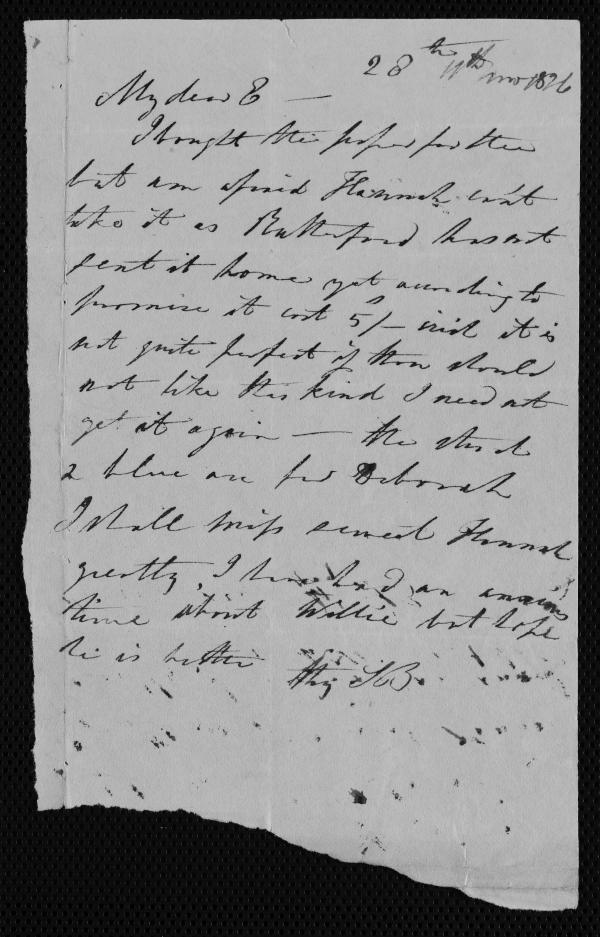 28th 11th mo 1826
My dear E —
I bought the paper for thee
but am afraid Hannah can't
take it as Rutterford has not
sent it home yet according to
promise it cost 5/- it is
not quite perfect if thou should
not like this kind I need not
get it again — the
2 blue are for Deborah
I shall miss sweet Hannah
greatly, I have had an anxious
time about Willie but hope
he is better thy SB